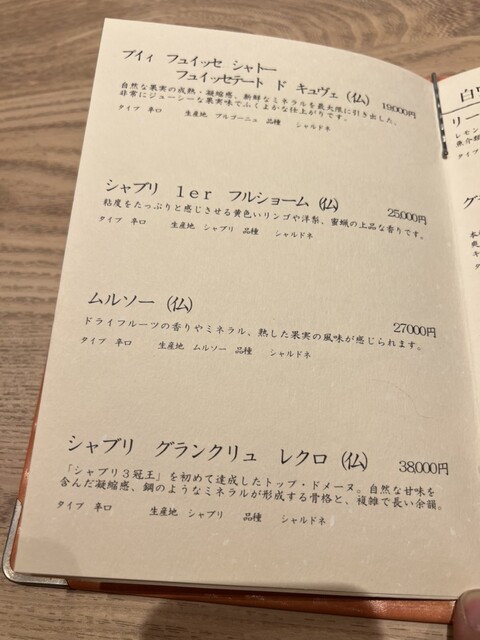 プイィ フュイッセ シャトー
フュイッセテート ド キュヴェ (仏) 19,000円
自然な果実の成熟・凝縮感、新鮮なミネラルを最大限に引き出した、
非常にジューシーな果実味でふくよかな仕上がりです。
タイプ 辛口 生産地 ブルゴーニュ 品種 シャルドネ
シャブリ 1er フルショーム (仏) 25,000円
粘度をたっぷりと感じさせる黄色いリンゴや洋梨、蜜蝋の上品な香りです。
タイプ 辛口 生産地 シャブリ 品種 シャルドネ
ムルソー (仏) 27000円
ドライフルーツの香りやミネラル、熟した果実の風味が感じられます。
タイプ 辛口 生産地 ムルソー 品種 シャルドネ
シャブリ グランクリュ レクロ (仏) 38,000円
「シャブリ3冠王」を初めて達成したトップ・ドメーヌ。自然な甘味を
含んだ凝縮感、鋼のようなミネラルが形成する骨格と、複雑で長い余韻。
タイプ 辛口 生産地 シャブリ 品種 シャルドネ
リー
レモン
魚介類
タイプ